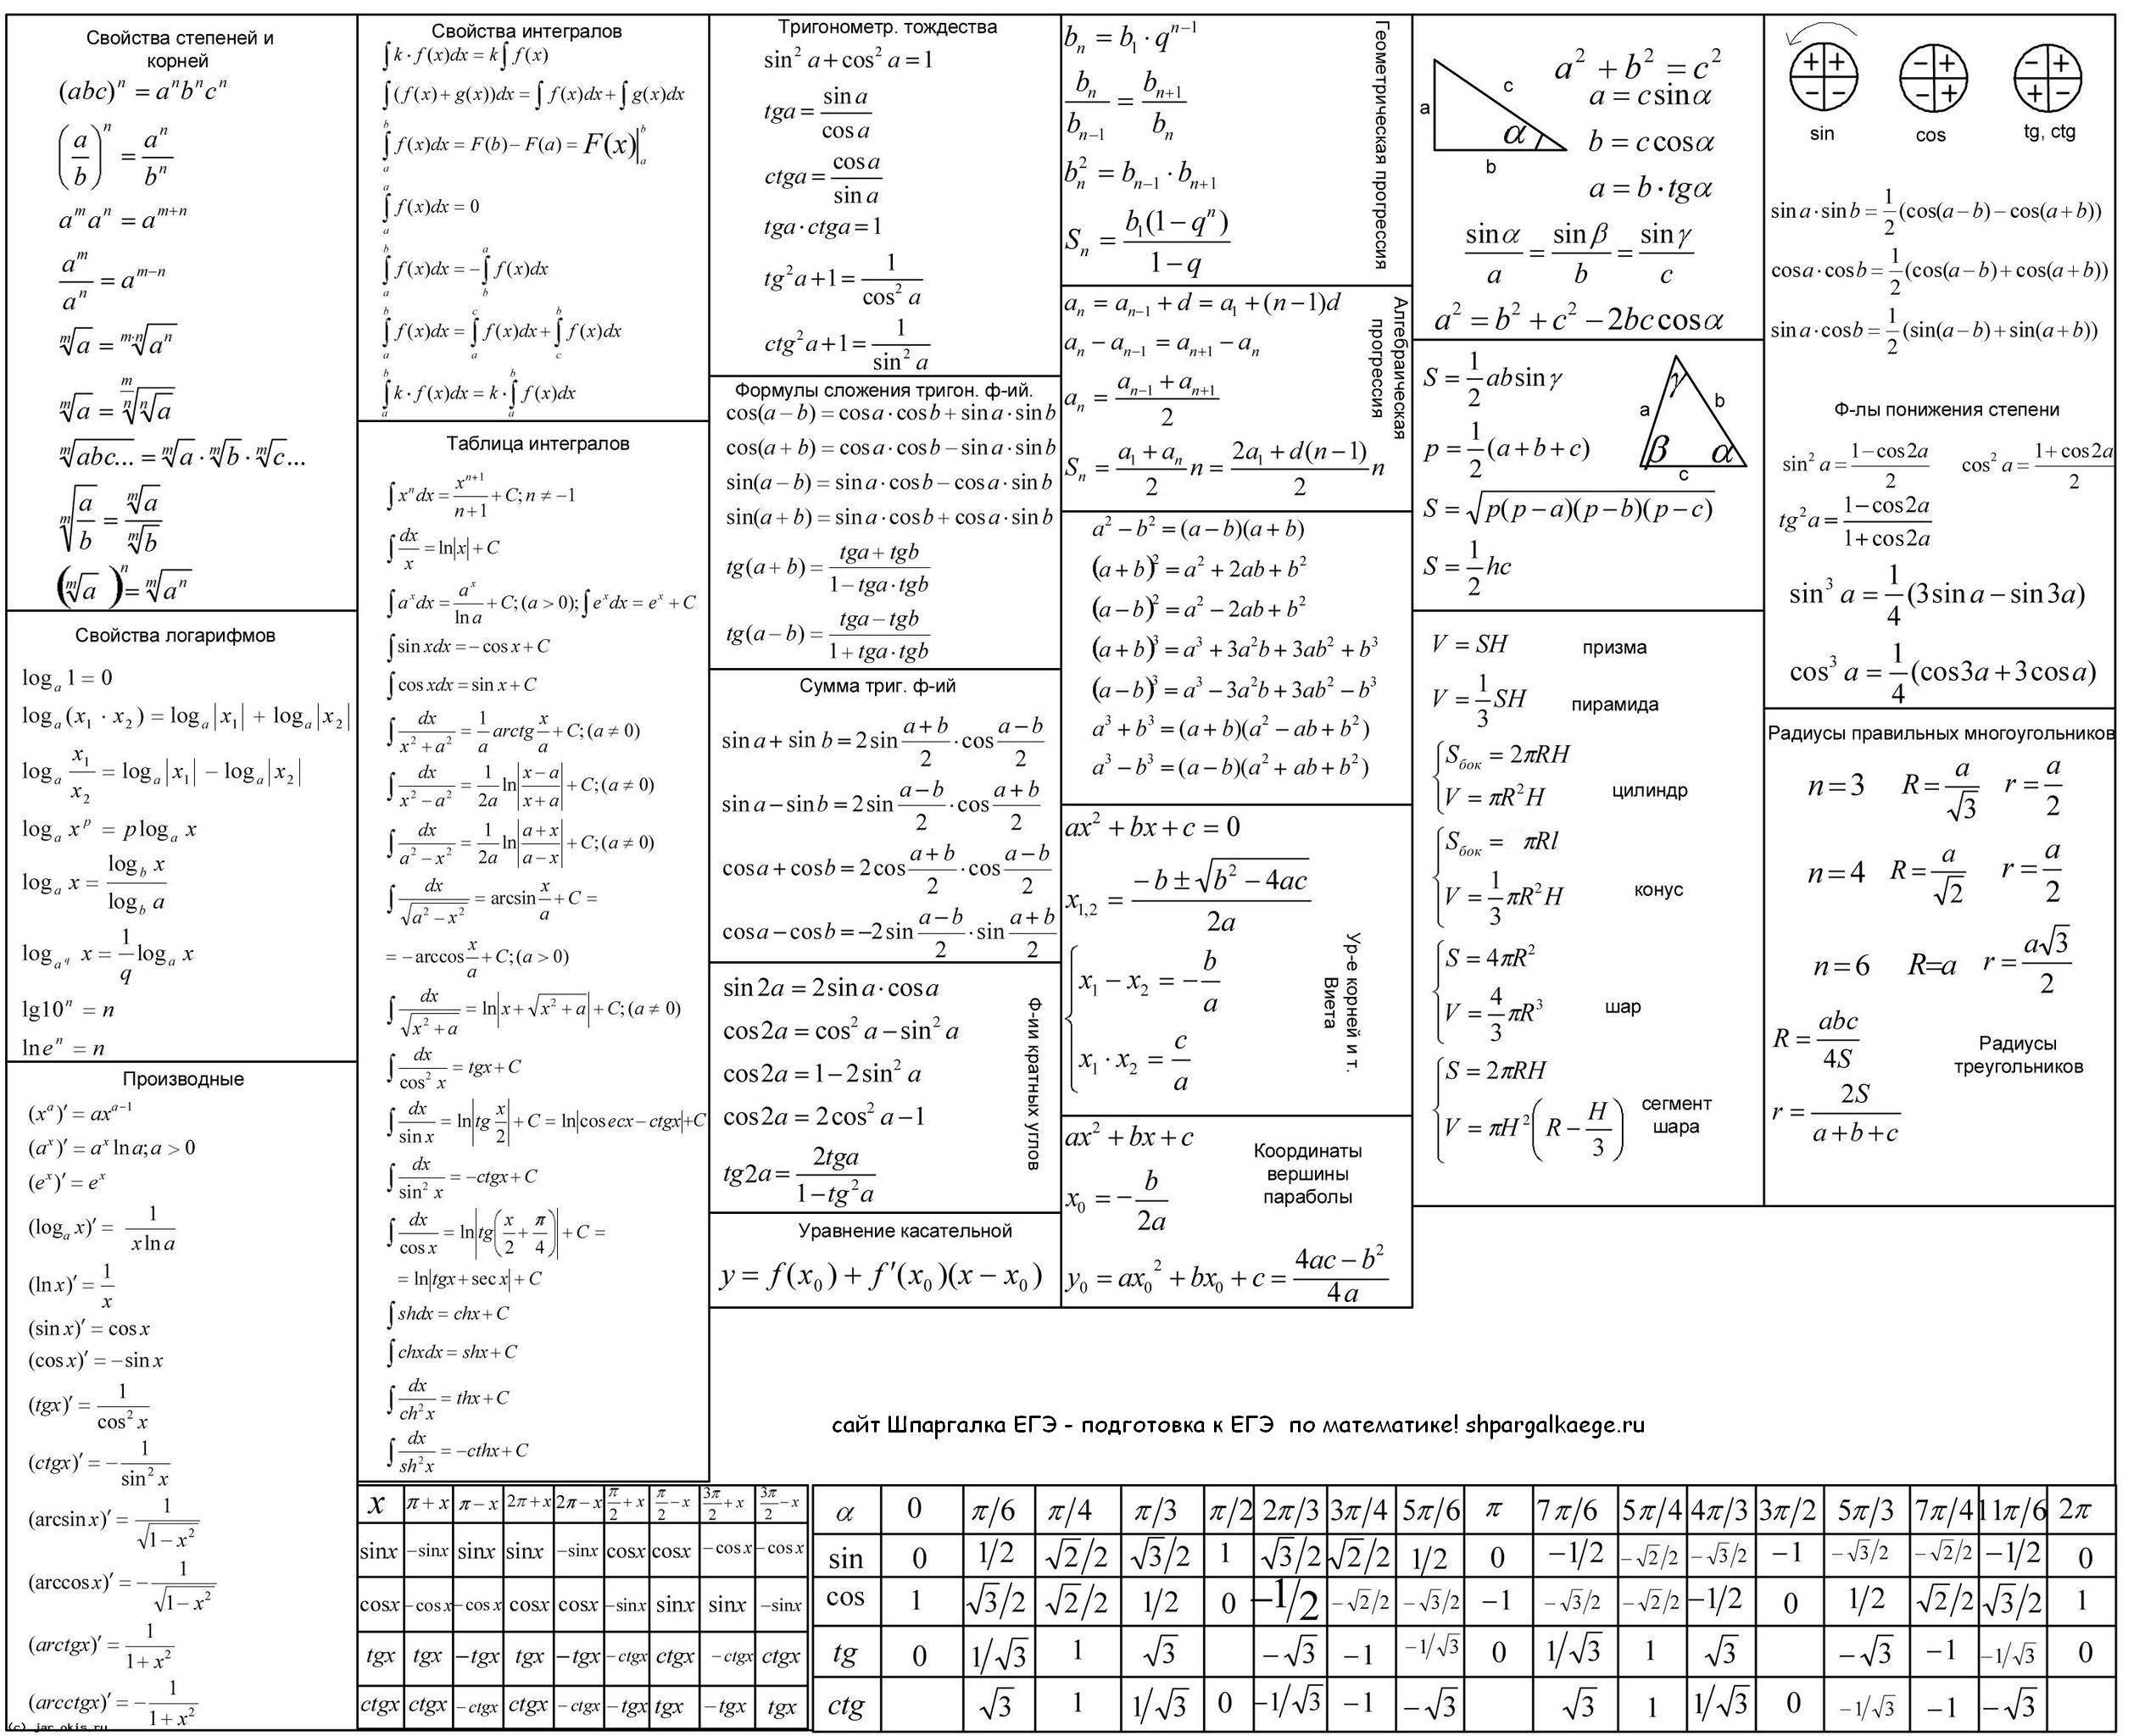 Свойства степеней и
корней
(abc)ⁿ = aⁿbⁿcⁿ
(a/b)ⁿ = aⁿ/bⁿ
aᵐaⁿ = aᵐ⁺ⁿ
aᵐ/aⁿ = aᵐ⁻ⁿ
ᵐ√a = ᵐ·ⁿ√(aⁿ)
ᵐ√a = ᵐ/ⁿ√(ⁿ√a)
ᵐ√(abc...) = ᵐ√a · ᵐ√b · ᵐ√c...
ᵐ√(a/b) = ᵐ√a / ᵐ√b
(ᵐ√a )ⁿ = ᵐ√(aⁿ)
Свойства логарифмов
log_a 1 = 0
log_a (x₁ · x₂) = log_a |x₁| + log_a |x₂|
log_a x₁/x₂ = log_a |x₁| − log_a |x₂|
log_a x^p = p log_a x
log_a x = log_b x / log_b a
log_{a^q} x = 1/q log_a x
lg10ⁿ = n
ln eⁿ = n
Производные
(x^a)′ = ax^(a−1)
(a^x)′ = a^x ln a; a > 0
(e^x)′ = e^x
(log_a x)′ = 1/(x ln a)
(ln x)′ = 1/x
(sin x)′ = cos x
(cos x)′ = −sin x
(tgx)′ = 1/cos² x
(ctgx)′ = −1/sin² x
(arcsin x)′ = 1/√(1−x²)
(arccos x)′ = −1/√(1−x²)
(arctgx)′ = 1/(1+x²)
(arcctgx)′ = −1/(1+x²)
(c) jar.okis.ru
Свойства интегралов
∫k·f(x)dx = k∫f(x)
∫(f(x)+g(x))dx = ∫f(x)dx+∫g(x)dx
∫_a^b f(x)dx = F(b)−F(a) = F(x)|_a^b
∫_a^a f(x)dx = 0
∫_a^b f(x)dx = −∫_b^a f(x)dx
∫_a^b f(x)dx = ∫_a^c f(x)dx+∫_c^b f(x)dx
∫_a^b k·f(x)dx = k·∫_a^b f(x)dx
Таблица интегралов
∫xⁿdx = xⁿ⁺¹/(n+1) + C; n ≠ −1
∫dx/x = ln|x| + C
∫a^x dx = a^x/ln a + C; (a > 0); ∫e^x dx = e^x + C
∫sin xdx = −cos x + C
∫cos xdx = sin x + C
∫dx/(x²+a²) = 1/a arctg x/a + C; (a ≠ 0)
∫dx/(x²−a²) = 1/2a ln|(x−a)/(x+a)| + C; (a ≠ 0)
∫dx/(a²−x²) = 1/2a ln|(a+x)/(a−x)| + C; (a ≠ 0)
∫dx/√(a²−x²) = arcsin x/a + C =
= −arccos x/a + C; (a > 0)
∫dx/√(x²+a) = ln|x+√(x²+a)| + C; (a ≠ 0)
∫dx/cos² x = tgx + C
∫dx/sin x = ln|tg x/2| + C = ln|cosecx − ctgx|+C
∫dx/sin² x = −ctgx + C
∫dx/cos x = ln|tg(x/2 + π/4)| + C =
= ln|tgx + sec x| + C
∫shdx = chx + C
∫chxdx = shx + C
∫dx/ch²x = thx + C
∫dx/sh²x = −cthx + C
Тригонометр. тождества
sin² a + cos² a = 1
tga = sin a/cos a
ctga = cos a/sin a
tga·ctga = 1
tg²a+1 = 1/cos² a
ctg²a+1 = 1/sin² a
Формулы сложения тригон. ф-ий.
cos(a−b) = cosa·cosb + sina·sinb
cos(a+b) = cosa·cosb − sina·sinb
sin(a−b) = sina·cosb − cosa·sinb
sin(a+b) = sina·cosb + cosa·sinb
tg(a+b) = (tga+tgb)/(1−tga·tgb)
tg(a−b) = (tga−tgb)/(1+tga·tgb)
Сумма триг. ф-ий
sina + sinb = 2sin (a+b)/2 · cos (a−b)/2
sina − sinb = 2sin (a−b)/2 · cos (a+b)/2
cosa + cosb = 2cos (a+b)/2 · cos (a−b)/2
cosa − cosb = −2sin (a−b)/2 · sin (a+b)/2
sin2a = 2sina·cosa
cos2a = cos² a − sin² a
cos2a = 1−2sin² a
cos2a = 2cos² a −1
tg2a = 2tga/(1−tg²a)
Ф-ии кратных углов
Уравнение касательной
y = f(x₀) + f′(x₀)(x − x₀)
bₙ = b₁·qⁿ⁻¹
bₙ/bₙ₋₁ = bₙ₊₁/bₙ
bₙ² = bₙ₋₁·bₙ₊₁
Sₙ = b₁(1−qⁿ)/(1−q)
Геометрическая прогрессия
aₙ = aₙ₋₁ + d = a₁ + (n−1)d
aₙ − aₙ₋₁ = aₙ₊₁ − aₙ
aₙ = (aₙ₋₁ + aₙ₊₁)/2
Sₙ = (a₁+aₙ)/2 n = (2a₁+d(n−1))/2 n
Алгебраическая
прогрессия
a² − b² = (a−b)(a+b)
(a+b)² = a² + 2ab + b²
(a−b)² = a² − 2ab + b²
(a+b)³ = a³ + 3a²b + 3ab² + b³
(a−b)³ = a³ − 3a²b + 3ab² − b³
a³ + b³ = (a+b)(a² − ab + b²)
a³ − b³ = (a−b)(a² + ab + b²)
ax² + bx + c = 0
x₁,₂ = (−b ± √(b² − 4ac))/2a
x₁ − x₂ = −b/a
x₁ · x₂ = c/a
Ур-е корней и т.
Виета
ax² + bx + c
x₀ = −b/2a
y₀ = ax₀² + bx₀ + c = (4ac − b²)/4a
Координаты
вершины
параболы
a c α b
a² + b² = c²
a = c sinα
b = c cosα
a = b·tgα
sinα/a = sinβ/b = sinγ/c
a² = b² + c² − 2bc cosα
S = 1/2 ab sinγ
p = 1/2 (a+b+c)
S = √(p(p−a)(p−b)(p−c))
S = 1/2 hc
γ a b β α c
V = SH призма
V = 1/3 SH пирамида
Sбок = 2πRH
V = πR²H цилиндр
Sбок = πRl
V = 1/3 πR²H конус
S = 4πR²
V = 4/3 πR³ шар
S = 2πRH
V = πH²(R − H/3)
сегмент
шара
+ + − − − + − + − + + −
sin cos tg, ctg
sina·sinb = 1/2 (cos(a−b) − cos(a+b))
cosa·cosb = 1/2 (cos(a−b) + cos(a+b))
sina·cosb = 1/2 (sin(a−b) + sin(a+b))
Ф-лы понижения степени
sin² a = (1−cos2a)/2 cos² a = (1+cos2a)/2
tg²a = (1−cos2a)/(1+cos2a)
sin³ a = 1/4 (3sina − sin3a)
cos³ a = 1/4 (cos3a + 3cosa)
Радиусы правильных многоугольников
n=3 R=a/√3 r=a/2
n=4 R=a/√2 r=a/2
n=6 R=a r=a√3/2
R = abc/4S
r = 2S/(a+b+c)
Радиусы
треугольников
сайт Шпаргалка ЕГЭ - подготовка к ЕГЭ по математике! shpargalkaege.ru
x π+x π−x 2π+x 2π−x π/2+x π/2−x 3π/2+x 3π/2−x
sinx −sinx sinx sinx −sinx cosx cosx −cosx −cosx
cosx −cosx −cosx cosx cosx −sinx sinx sinx −sinx
tgx tgx −tgx tgx −tgx −ctgx ctgx −ctgx ctgx
ctgx ctgx −ctgx ctgx −ctgx −tgx tgx −tgx tgx
α 0 π/6 π/4 π/3 π/2 2π/3 3π/4 5π/6 π 7π/6 5π/4 4π/3 3π/2 5π/3 7π/4 11π/6 2π
sin 0 1/2 √2/2 √3/2 1 √3/2 √2/2 1/2 0 −1/2 −√2/2 −√3/2 −1 −√3/2 −√2/2 −1/2 0
cos 1 √3/2 √2/2 1/2 0 −1/2 −√2/2 −√3/2 −1 −√3/2 −√2/2 −1/2 0 1/2 √2/2 √3/2 1
tg 0 1/√3 1 √3 −√3 −1 −1/√3 0 1/√3 1 √3 −√3 −1 −1/√3 0
ctg √3 1 1/√3 0 −1/√3 −1 −√3 √3 1 1/√3 0 −1/√3 −1 −√3